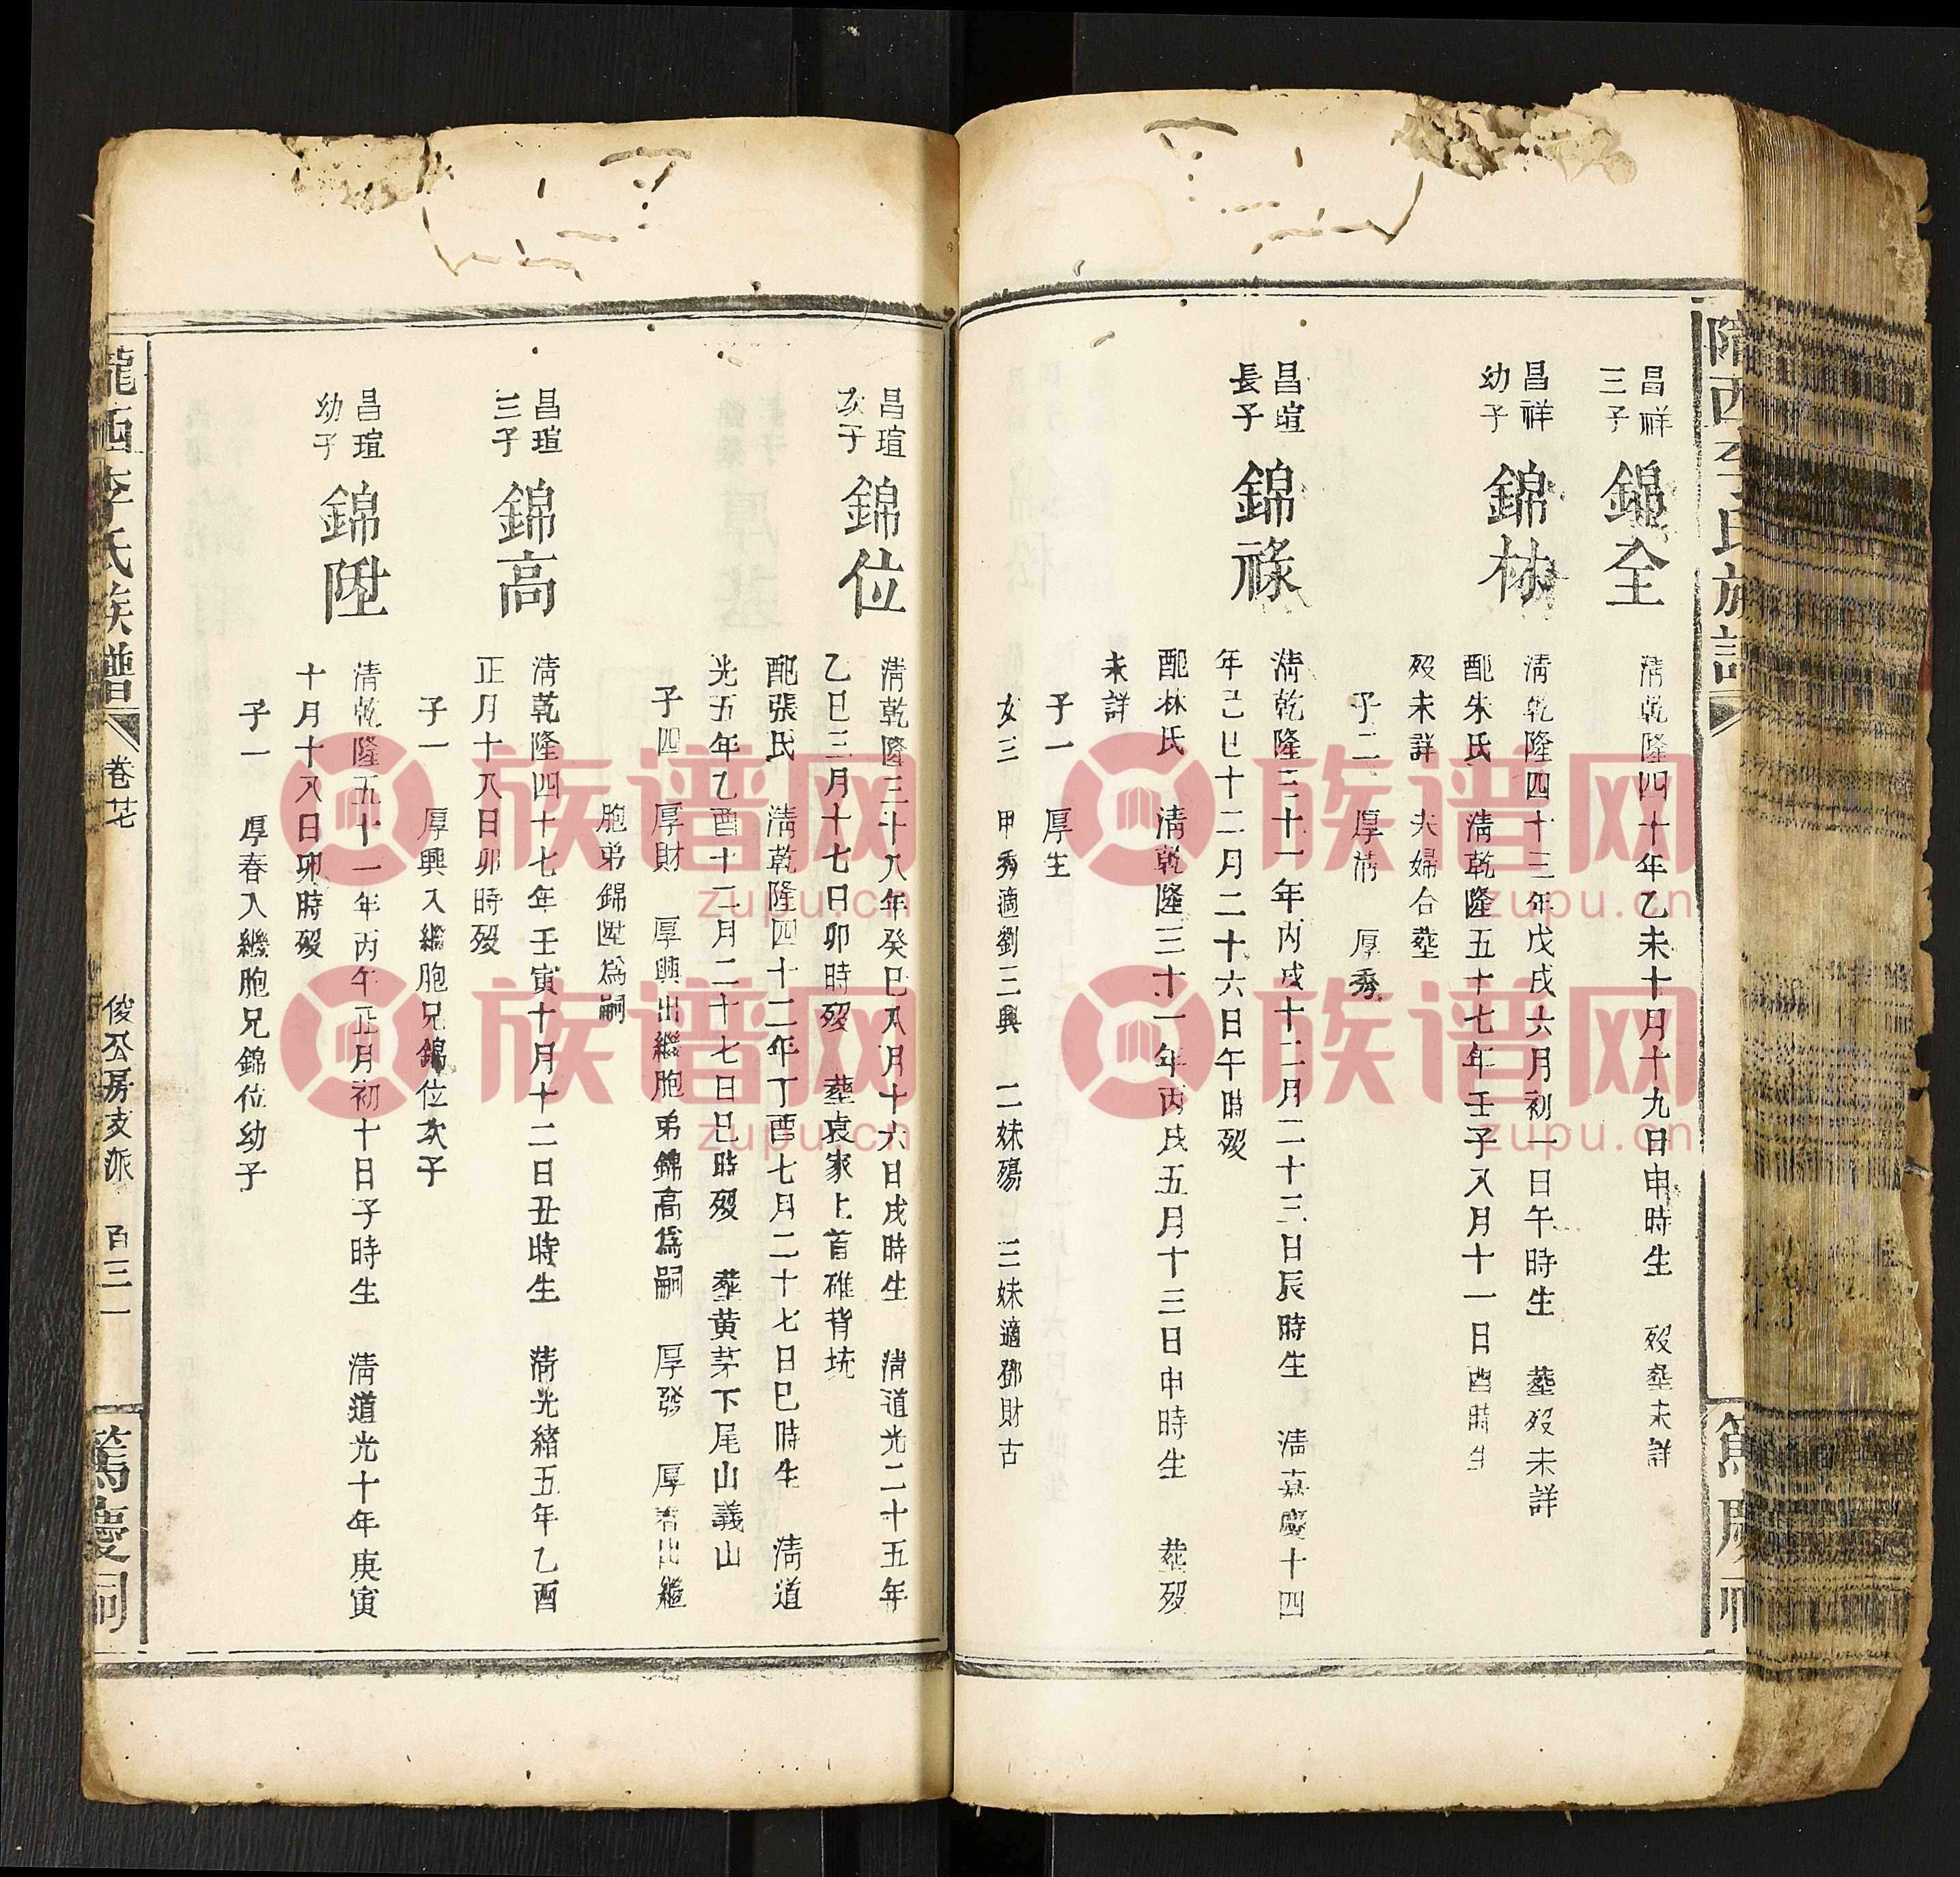 隴西李氏族譜
篤慶祠
昌祥
三子
錦全
清乾隆四十年乙未十月十九日申時生 歿塟未詳
昌祥
幼子
錦林
清乾隆四十三年戊戌六月初一日午時生 塟歿未詳
配朱氏 清乾隆五十七年壬子八月十一日酉時生
歿未詳 夫婦合塟
子二 厚清 厚秀
昌暄
長子
錦祿
清乾隆三十一年丙戌十二月二十三日辰時生 清嘉慶十四
年己巳十二月二十六日午時歿
配林氏 清乾隆三十一年丙戌五月十三日申時生 塟歿
未詳
子一 厚生
女三 甲秀適劉三興 二妹殤 三妹適鄧財古
昌瑄
次子
錦位
清乾隆三十八年癸巳八月十六日戌時生 清道光二十五年
乙巳三月十七日卯時歿 塟袁家上首碓背坑
配張氏 清乾隆四十二年丁酉七月二十七日巳時生 清道
光五年乙酉十二月二十七日巳時歿 塟黄茅下尾山義山
子四 厚財 厚興出繼胞弟錦高為嗣 厚發 厚春出繼
胞弟錦陞為嗣
昌瑄
三子
錦高
清乾隆四十七年壬寅十月十二日丑時生 清光緒五年乙酉
正月十八日卯時歿
子一 厚興入繼胞兄錦位次子
昌瑄
幼子
錦陞
清乾隆五十一年丙午正月初十日子時生 清道光十年庚寅
十月十八日卯時歿
子一 厚春入繼胞兄錦位幼子
隴西李氏族譜 卷廿 俊公房支派 百三一 篤慶祠
族谱网
zupu.cn
族谱网
zupu.cn
族谱网
zupu.cn
族谱网
zupu.cn